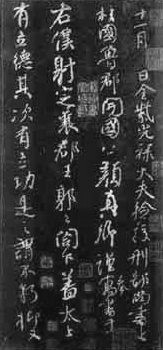 十一月日金紫光祿大夫檢挍刑部尚書上
柱國魯郡開國公顏真卿謹奉書于
右僕射定襄郡王郭公閤下蓋太上
有立德其次有立功是之謂不朽抑又